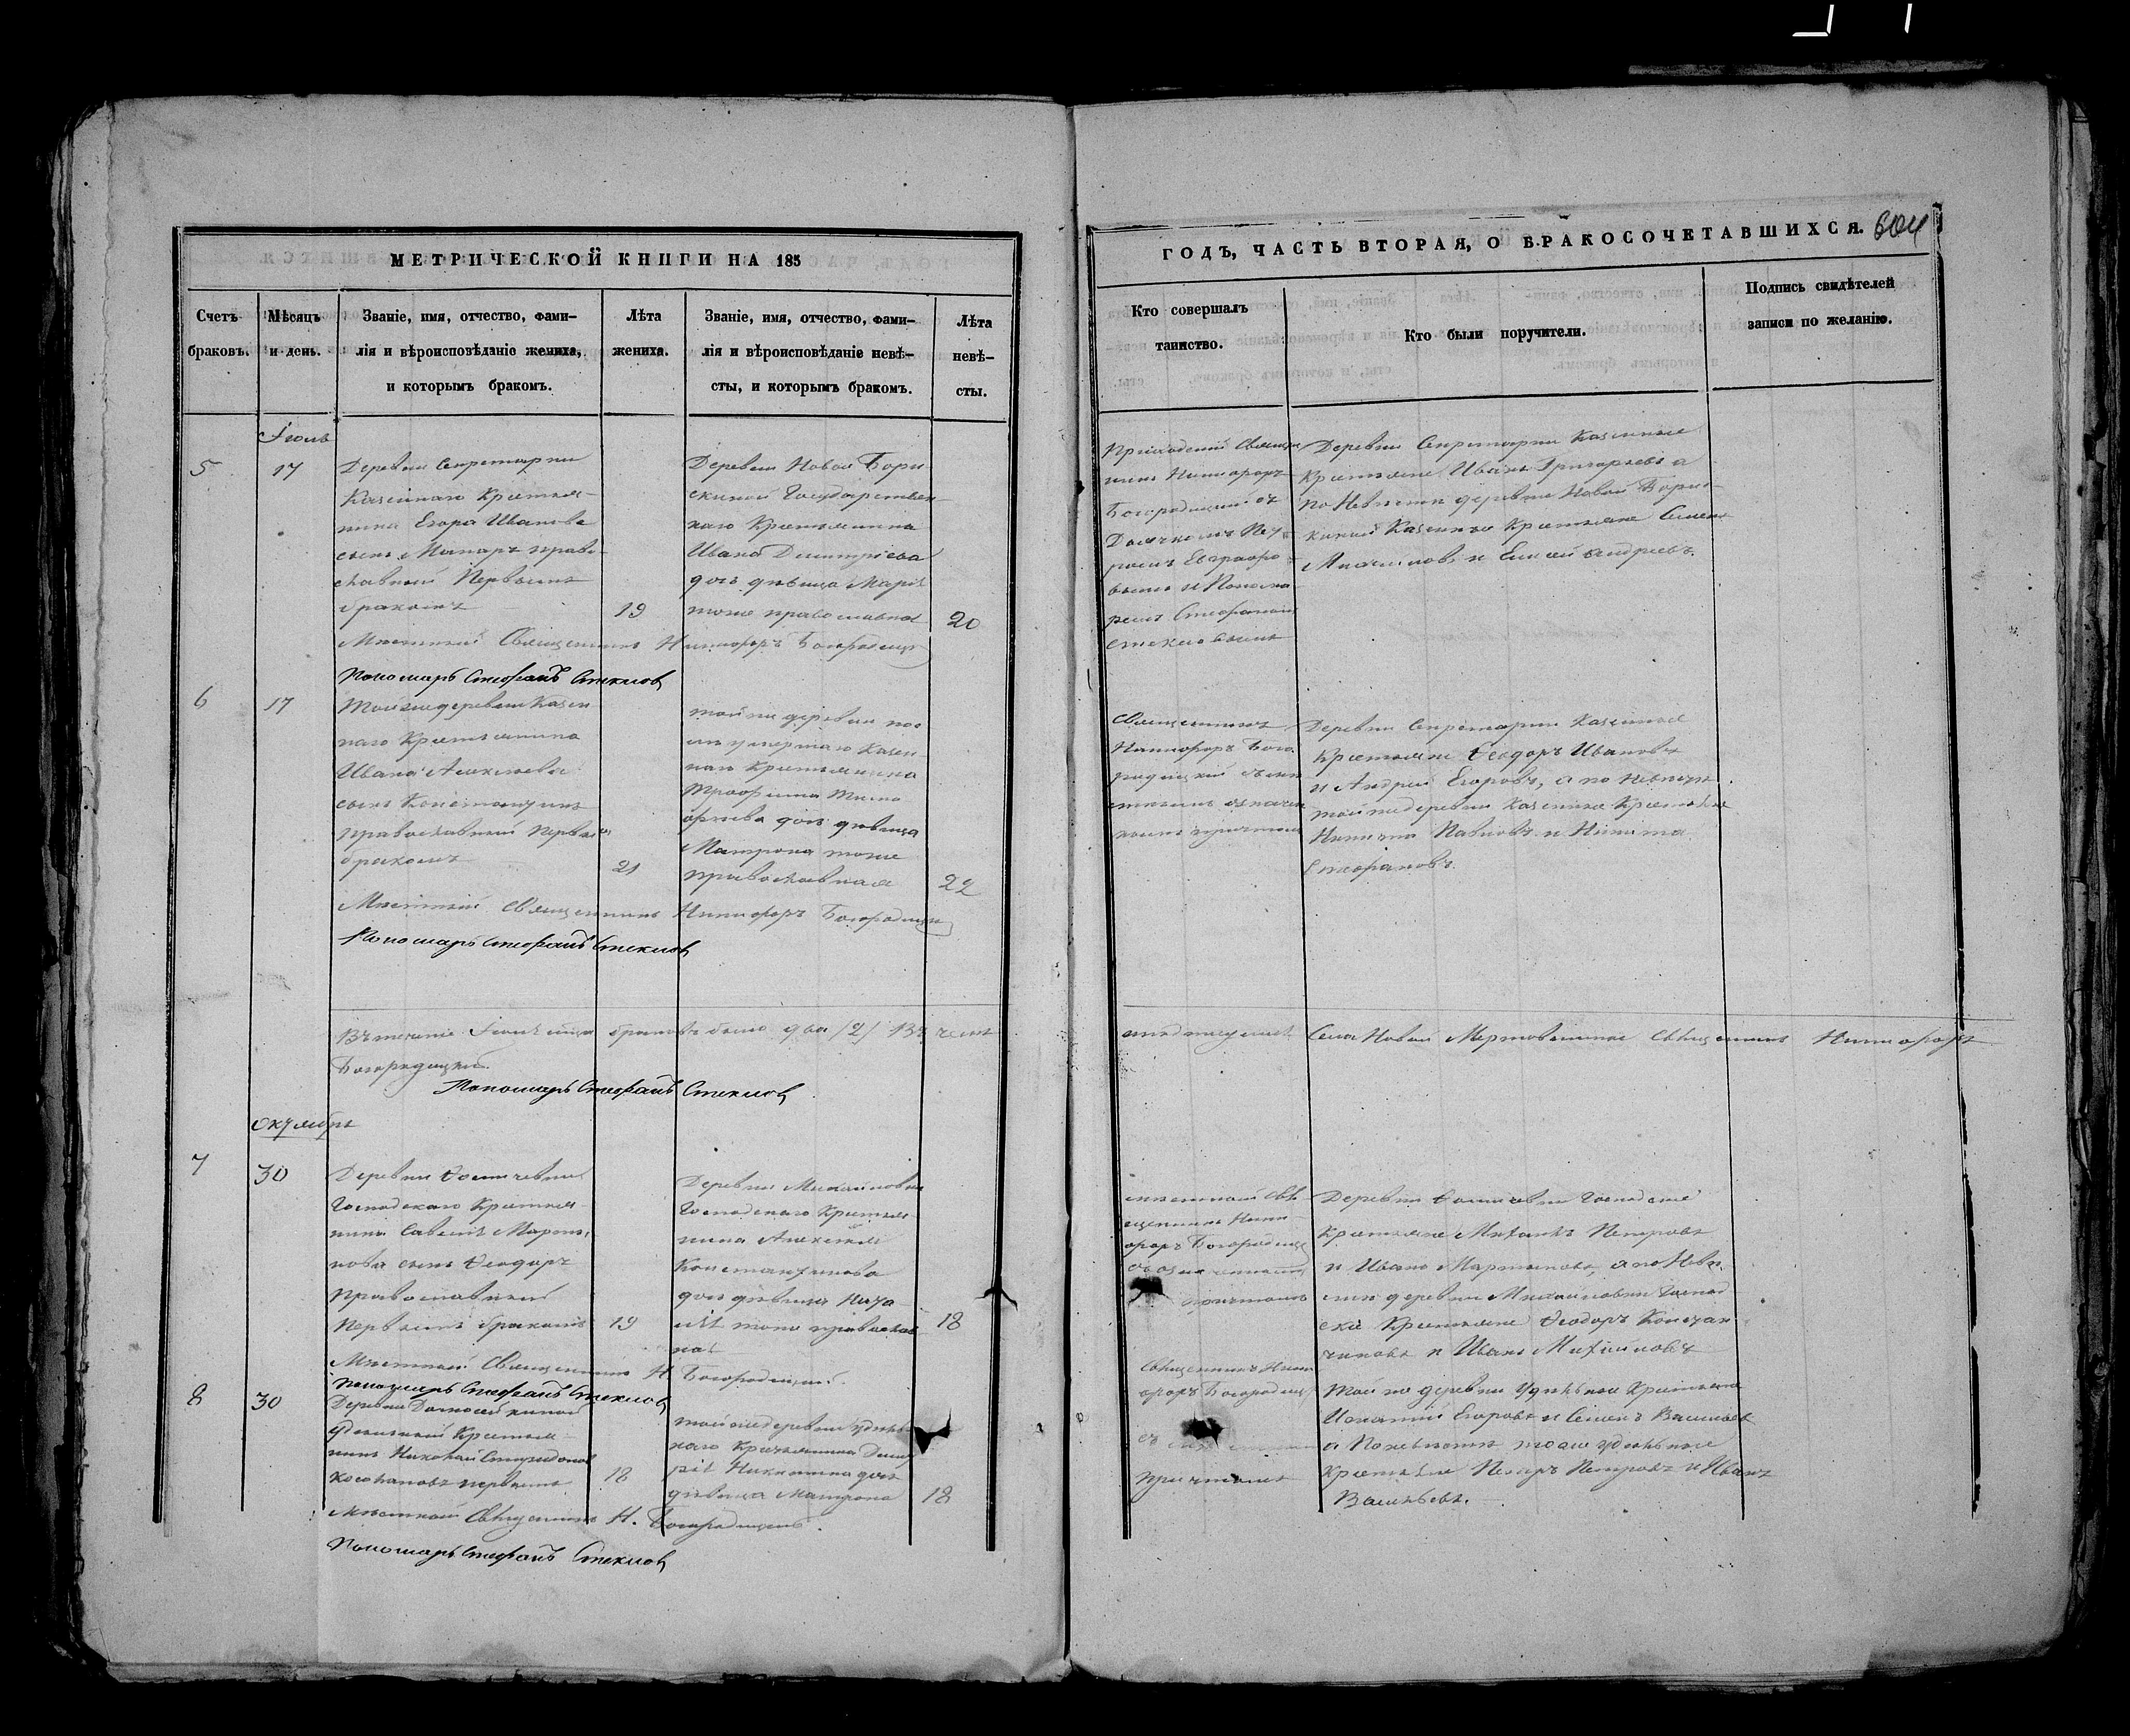 МЕТРИЧЕСКОЙ КНИГИ НА 185
Счетъ браковъ.
Мѣсяцъ и день.
Званіе, имя, отчество, фами-
лія и вѣроисповѣданіе жениха,
и которымъ бракомъ.
Лѣта жениха.
Званіе, имя, отчество, фами-
лія и вѣроисповѣданіе невѣ-
сты, и которымъ бракомъ.
Лѣта невѣ-
сты.
Іюль
5
17
Деревни
Казеннаго Крестья-
нина Егора Иванова
сынъ Макаръ право-
славный Первымъ
бракомъ
19
Деревни Новой Бори-
скиной Государствен-
наго Крестьянина
Ивана Димитріева
дочь дѣвица Марія
тоже православная
20
Мѣстный Священникъ Никифоръ Богородицк
Пономарь Стефанъ Стеклов
6
17
Той же деревни Казен
наго Крестьянина
Ивана Алексѣева
сынъ Константинъ
православный первымъ
бракомъ
21
той же деревни
умершаго Казен
наго Крестьянина
Трофима
дочь дѣвица
Матрона тоже
православная
22
Мѣстный Священникъ Никифоръ Богородицк
Пономарь Стефанъ Стеклов
Въ теченіе Іюля мѣсяца браковъ было два /2/ Въ чемъ
Богородицкій.
Пономарь Стефанъ Стеклов
Октябрь
7
30
Деревни Фомичевки
Господскаго Крестья-
нина Савелія
нова сынъ Ѳеодоръ
православный
Первымъ бракомъ
19
Деревни Михайловки
Господскаго Крестья-
нина Алексѣя
Константинова
дочь дѣвица Ната
лія тоже православ-
ная
18
Мѣстный Священникъ Н. Богородицкій.
Пономарь Стефанъ Стеклов
8
30
Деревни
удѣльный Крестья-
нинъ Николай Спиридонов
первымъ
18
той же деревни удѣль
наго Крестьянина Дмит
рія Никитина дочь
дѣвица Матрона
18
Мѣстный Священникъ Н. Богородицкій.
Пономарь Стефанъ Стеклов
ГОДЪ, ЧАСТЬ ВТОРАЯ, О БРАКОСОЧЕТАВШИХСЯ.
604
Кто совершалъ
таинство.
Кто были поручители.
Подпись свидѣтелей
записи по желанію.
Приходскій Священ
никъ Никифоръ
Богородицкій съ
Дьячкомъ Пет
ромъ Евграфо
вымъ и Понома
ремъ Стефаномъ
Стекловымъ
Деревни Казенные
Крестьяне Иванъ Григорьевъ а
по Невѣстѣ деревни Новой Борис
киной Казенные Крестьяне Семенъ
и Андреевъ.
Священникъ
Никифоръ Бого
родицкій съ вы
шеозначен
нымъ причтомъ
Деревни Казенные
Крестьяне Ѳеодоръ Ивановъ
и Андрей Егоровъ, а по невѣстѣ
той же деревни Казенные Крестьяне
Никита Павловъ и Никита
Стефановъ.
подписуемся Села Новой Священникъ Никифоръ
мѣстный свя
щенникъ Ники
форъ Богородицк
съ означеннымъ
причтомъ
Деревни Фомичевки Господскіе
Крестьяне Михаилъ Петровъ
и Иванъ Мартыновъ, а по Невѣ
стѣ деревни Михайловки Господ
скіе Крестьяне Ѳеодоръ Констан
тиновъ и Иванъ Михайловъ
Священникъ Ники
форъ Богородицк
съ
причтомъ
Той же деревни Удѣльные Крестьяне
Игнатій Егоровъ и Семенъ Васильевъ
а По невѣстѣ тоже удѣльные
Крестьяне Петръ Петровъ и Иванъ
Васильевъ.